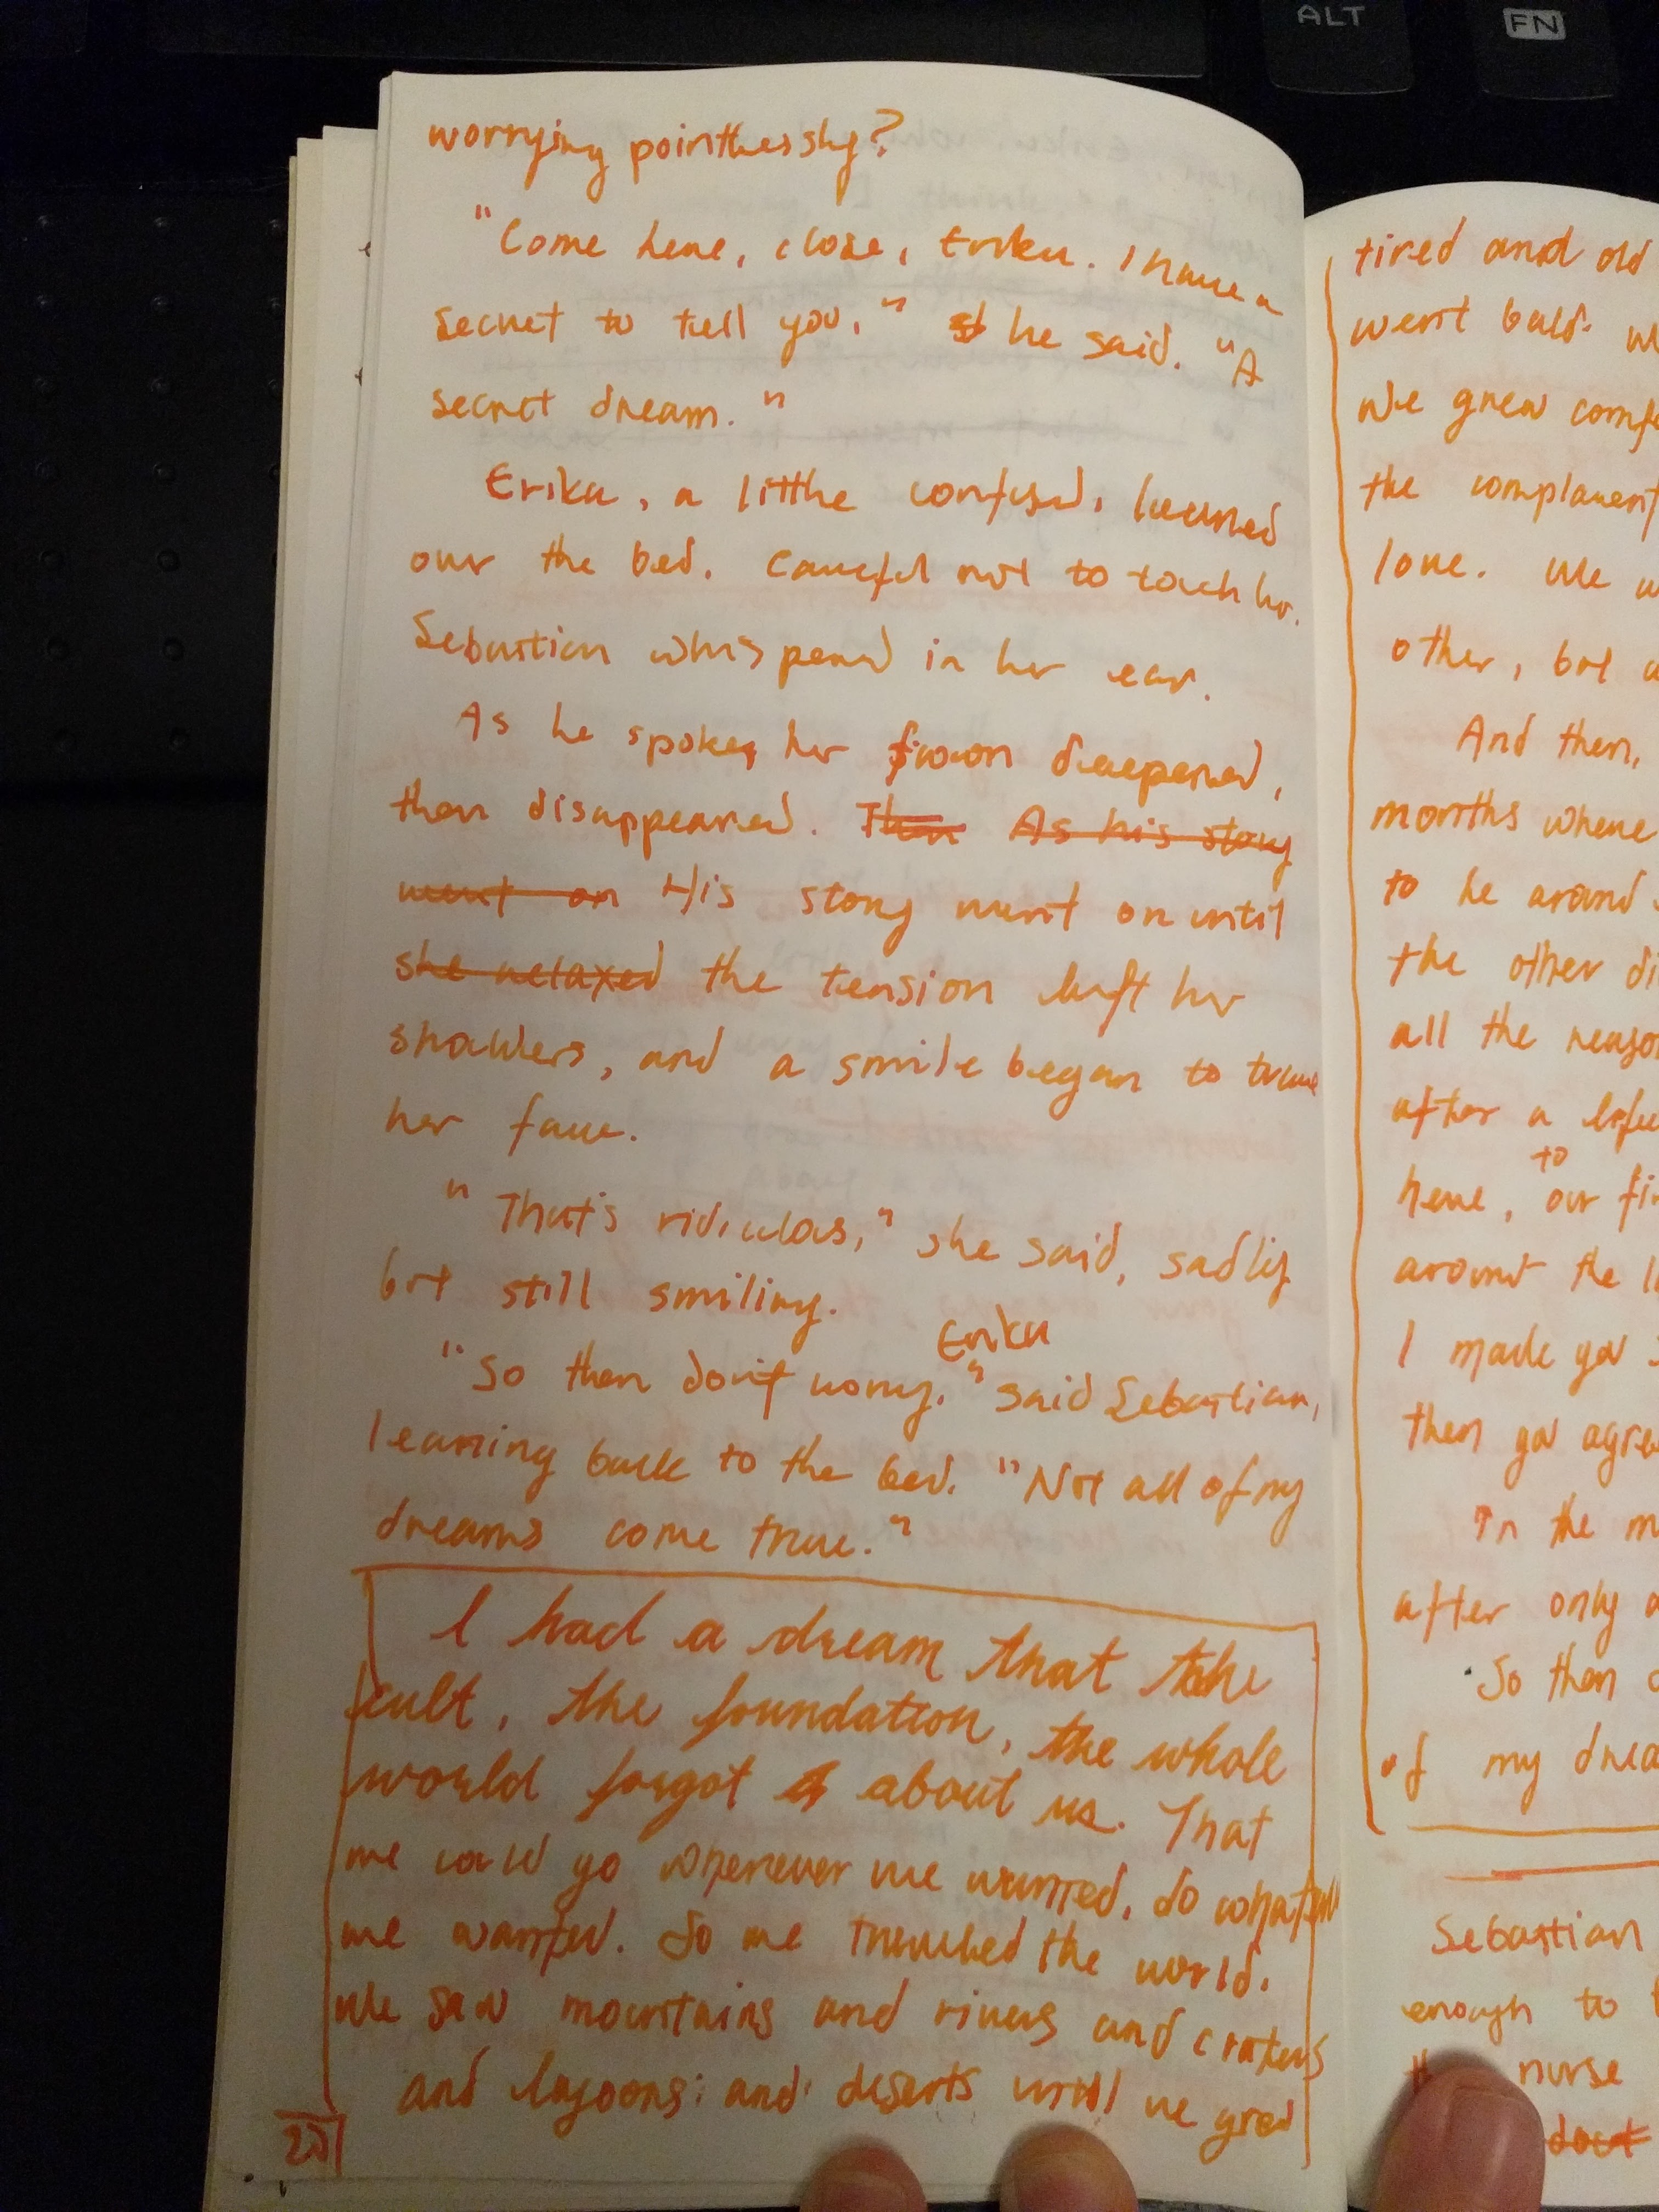 ALT
FN
worrying pointlessly?
"Come here, close, Erika. I have a
secret to tell you." he said. "A
secret dream."
Erika, a little confused, leaned
over the bed. Careful not to touch her.
Sebastian whispered in her ear.
As he spoke, her frown deepened,
then disappeared. Then As his story
went on His story went on until
she relaxed the tension left her
shoulders, and a smile began to trace
her face.
"That's ridiculous," she said, sadly
but still smiling.
Erika
"So then don't worry." said Sebastian,
leaning back to the bed. "Not all of my
dreams come true."
I had a dream that the
cult, the foundation, the whole
world forgot about us. That
we could go wherever we wanted, do whatever
we wanted. So we traveled the world.
We saw mountains and rivers and craters
and lagoons and deserts until we grew
tired and old
went bald.
We grew comf
the complacent
love. We w
other, but
And then,
months where
to be around
the other di
all the reaso
after a life
to
here, our fi
around the l
I made you
then you agre
In the m
after only a
So then
of my drea
Sebastian
enough to
nurse